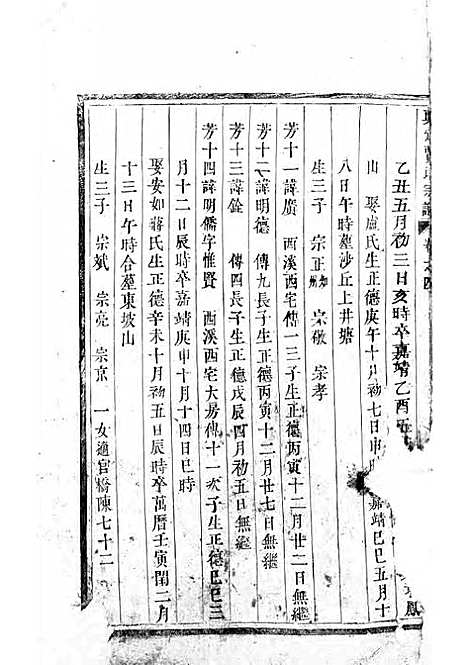 乙丑五月初三日亥時卒嘉靖乙酉五
山　娶盧氏生正德庚午十月初七日申時　嘉靖巳巳五月十
八日午時葬沙丘上井塘
生三子　宗正　宗敬　宗孝
芳十一諱廣　西溪西宅傳一三子生正德丙寅十二月廿二日無繼
芳十二諱明德　傳九長子生正德丙寅十二月廿七日無繼
芳十三諱銓　傳四長子生正德戊辰四月初五日無繼
芳十四諱明儒字惟賢　西溪西宅大房傳十一次子生正德巳巳三
月十二日辰時卒嘉靖庚申十月十四日巳時
娶安如蔣氏生正德辛未十月初五日辰時卒萬曆壬寅閏二月
十三日午時合葬東坡山
生三子　宗斌　宗亮　宗京　一女適官橋陳七十二